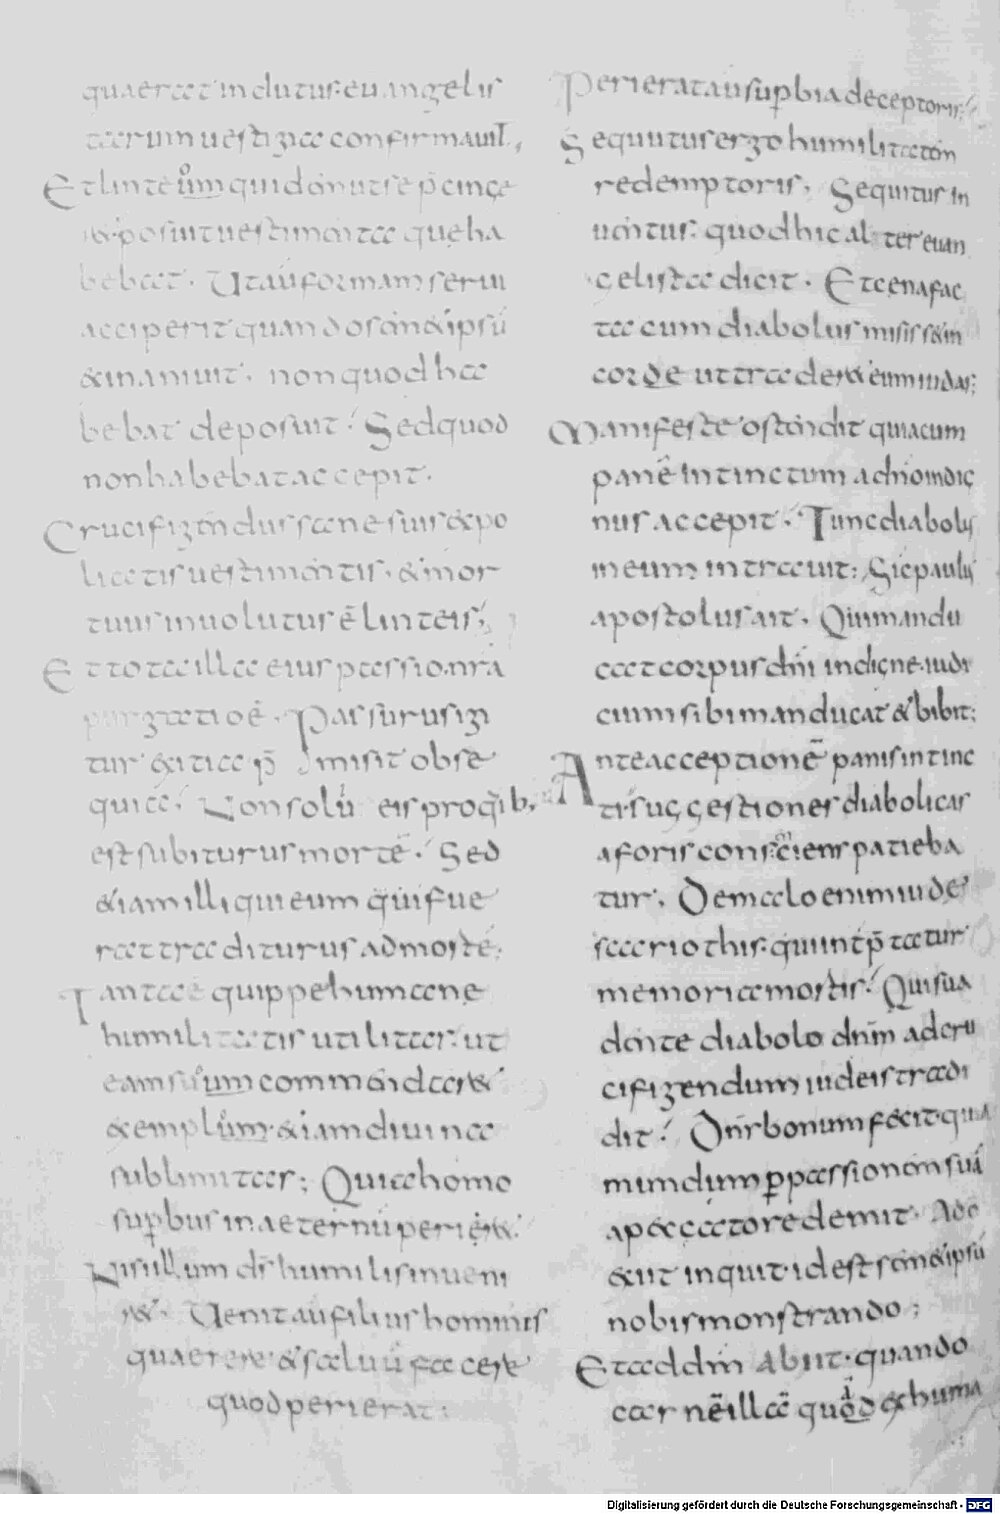 quaerat indutus: euangelis
tarum uestigia confirmauit,
Et linteum qui donatus e p̄cinge
& posuit uestimenta que ha
bebat. Ut aū formam serui
acciperit quando sem&ipsū
&inaniuit. non quod ha
bebat deposuit. Sed quod
non habebat accepit.
Crucifigendus sane suis expo
liatis uestimentis. & mor
tuus inuolutus ē linteis;
Et tota illa eius passio nr̄a
purgatio ē. Passurus igi
tur exitia p̄misit obse
quia. Non solū eis pro qib;
est subiturus mortē. Sed
&iam illi qui eum qui fue
rat traditurus ad mortē.
Tantae quippe humane
humilitatis utilitas: ut
eam suum commendar&
exemplum. &iam diuina
sublimitas; Quia homo
suꝑbus in aeternū perier&.
Nisi illum ds̄ humilis inueni
r&. Uenit aū filius hominis
quaerere & saluū facere
quod perierat:
Perierat aū suꝑbia deceptoris:
Sequitur ergo humilitatem
redemptoris. Sequitur in
uentus: quod hic alter euan
gelista dicit. Et cena fac
ta cum diabolus misiss& in
corde ut trader& eum iudas;
Manifeste ostendit quia cum
panē intinctum ad nom dig
nus accepit. Tunc diabolus
in eum intrauit: Sic paulus
apostolus ait. Qui mandu
cat corpus dn̄i indigne. iudi
cium sibi manducat & bibit;
Ante acceptionē panis intinc
ti. suggestiones diabolicas
aforis cons̄ciens patieba
tur. De malo enim iude
scariothis: qui intp̄tatur
memoria mortis. Qui sua
dente diabolo dn̄m ad cru
cifigendum iudeis tradi
dit. Dn̄s bonum fecit. quia
mundum ꝑ passionem suā
a peccato redemit. Ad
&ut inquit. id est sem&ipsū
nobis monstrando;
Et ad dm̄ abiit. quando
carnē illā quod ex huma